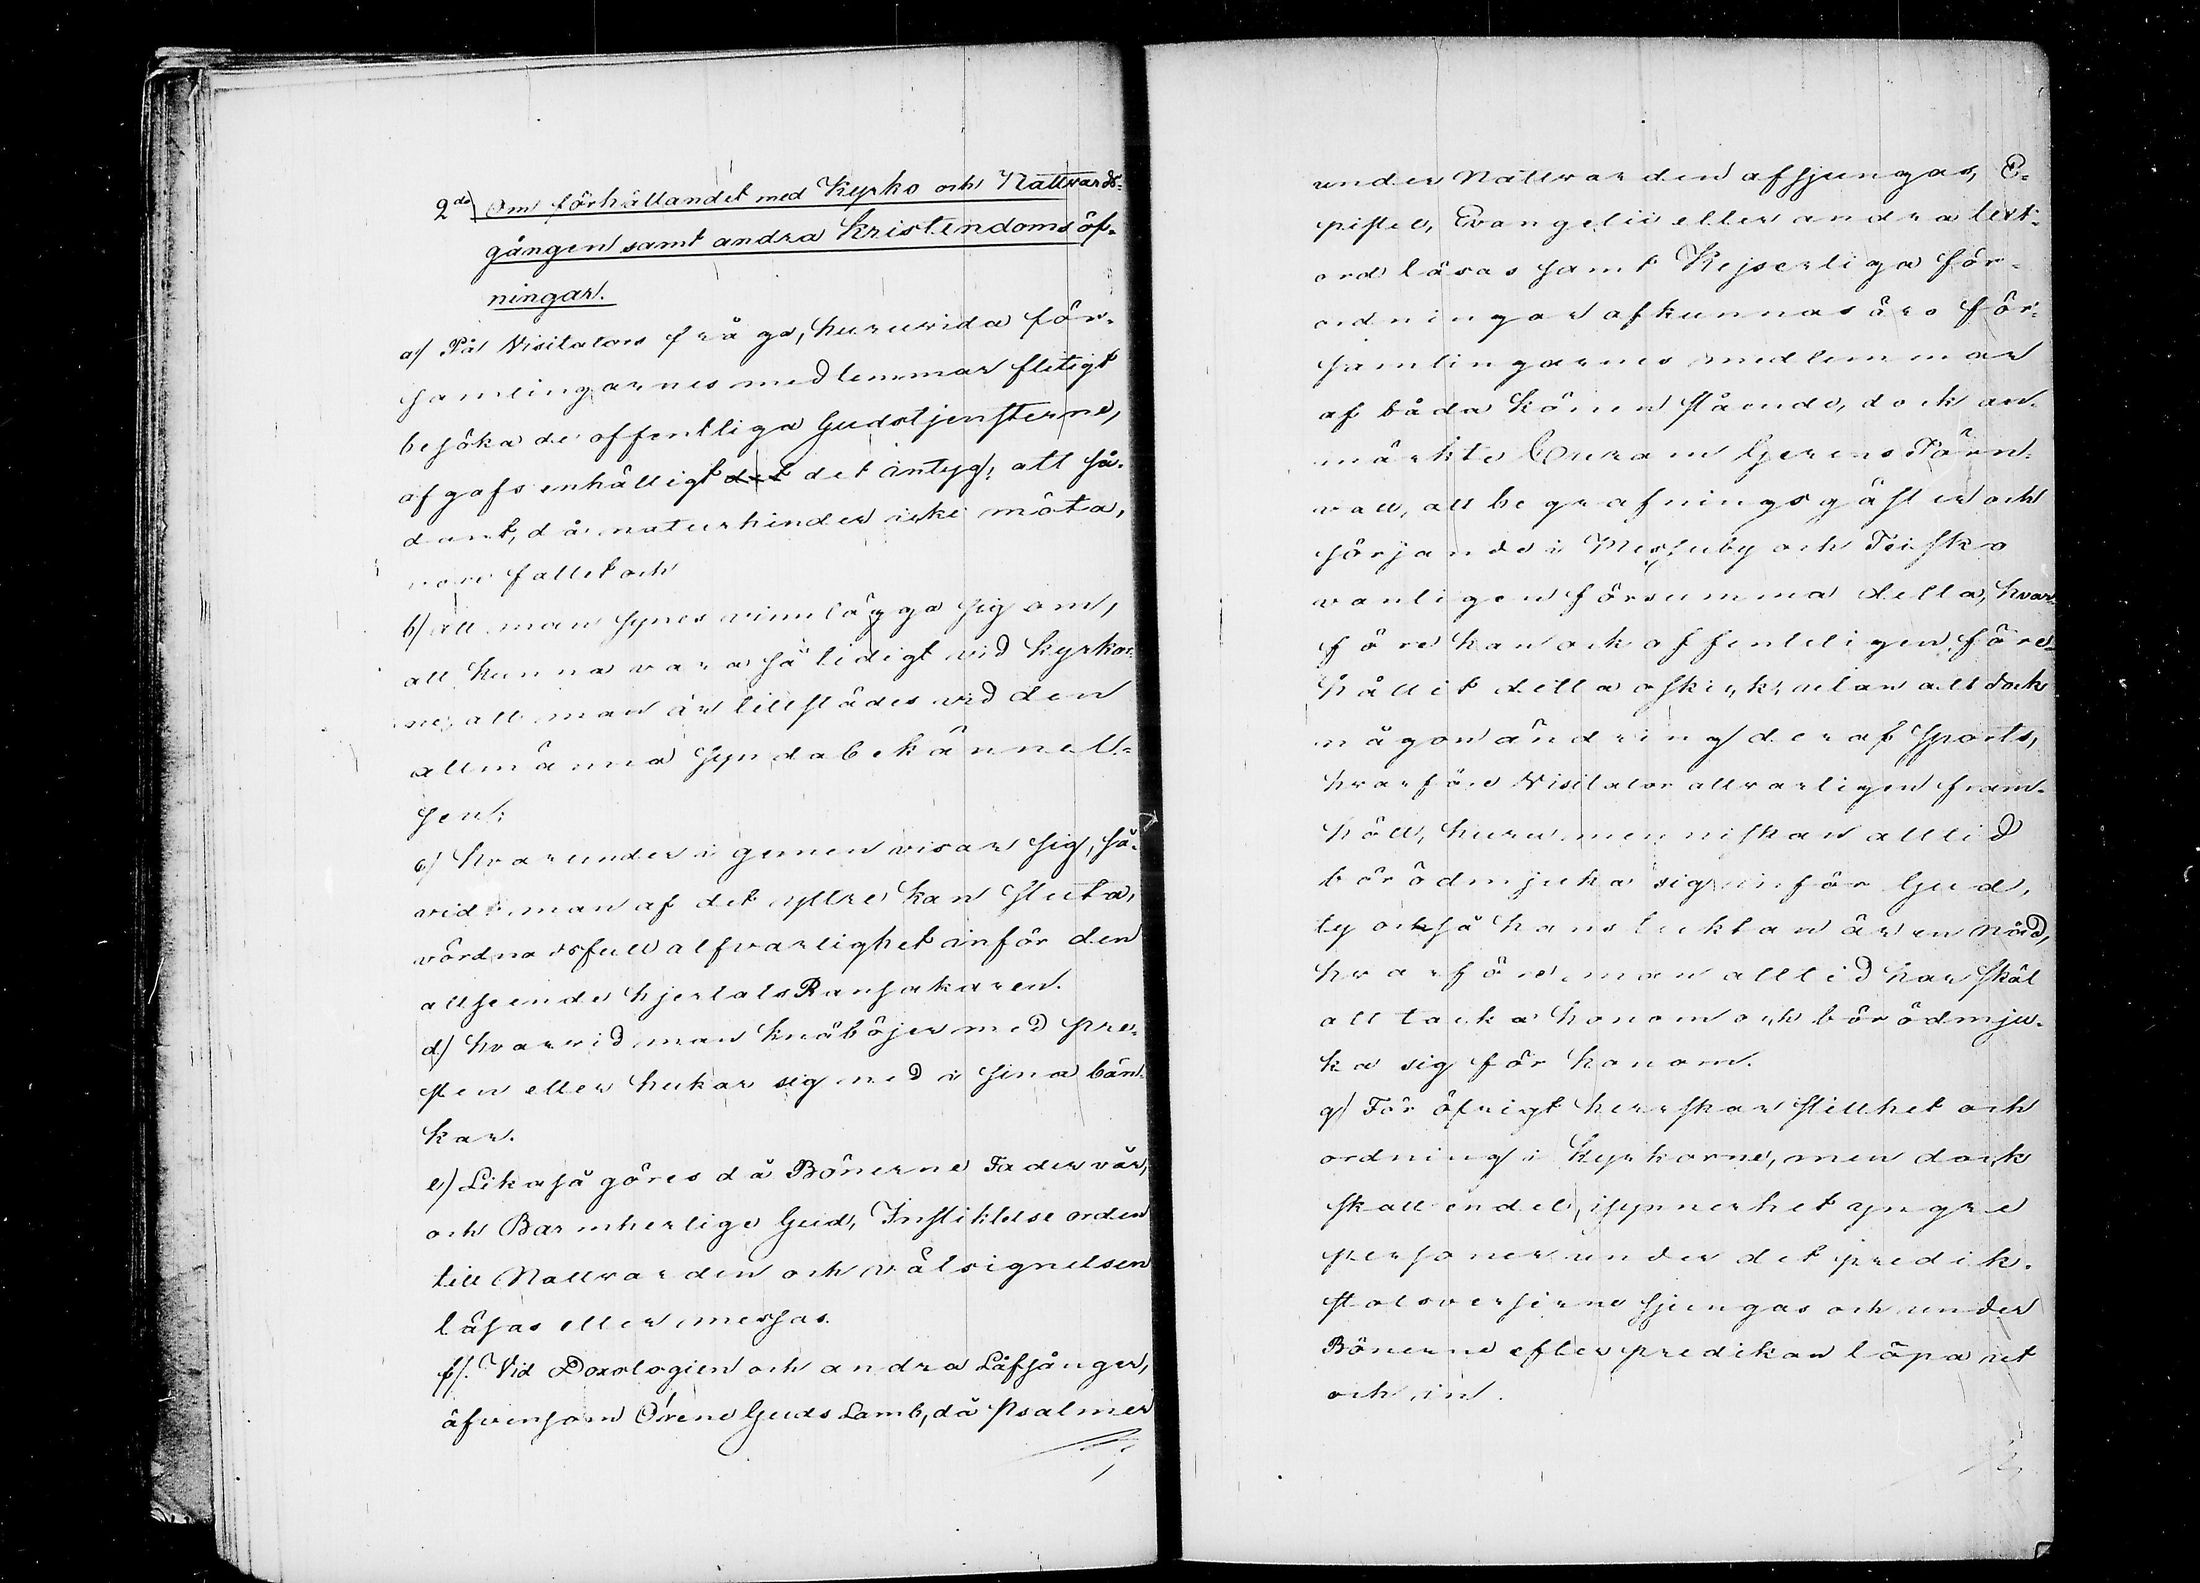 2do) Om förhållandet med Kyrko och Nattvards-
gången samt andra Kristendomsöf-
ningar.
a) På Visitators fråga, huruvida för-
samlingarnes medlemmar flitigt
besöka de offentliga Gudstjensterne,
afgafs enhälligt det det intyg, att så-
dant, då naturhinder icke möta,
vore fallet och
b) att man synes vinnlägga sig om,
att kunna vara så tidigt vid kyrkor-
ne, att man är tillstädes vid den
allmänna Syndabekännel-
sen;
c) hvarunder i gemen visar sig, så-
vidt man af det yttre kan sluta,
vördnadsfull alfvarlighet inför den
allseende hjertats Ransakaren.
d) hvarvid man knäböjer med pre-
sten eller hukar sig ned i sina bän-
kar.
e) Likaså göres då Bönerne Fader vår,
och Barmhertige Gud, Instiktelse orden
till Nattvarden och välsignelsen
läsas eller messas.
f). Vid Doxologien och andra Låfsånger,
äfvensom O rene Guds Lamb, då Psalmer
under Nattvarden afsjungas, E-
pistel, Evangelii eller andra text-
ord läsas samt Kejserliga för-
ordningar afkunnas äro för-
samlingarnes medlemmar
af båda könen stående, dock an-
märkte Curam Gerens Törn-
vall, att begrafningsgäster och
sörjande i Messuby och Teisko
vanligen försumma detta, hvar-
före han ock offentligen före-
hållit detta oskick, utan att dock
någon ändring deraf sports,
hvarföre Visitator allvarligen fram-
höll, huru menniskan alltid
bör ödmjuka sig inför Gud,
ty också hans tucktan är en nåd,
hvarföre man alltid har skäl
att tacka honom och bör ödmju-
ka sig för honom.
g) För öfrigt herrskar stillhet och
ordning i Kyrkorne, men dock
skall en del, isynnerhet yngre
personer under det predik-
stolsverserne sjungas och under
Bönerne efter predikan löpa ut
och in.